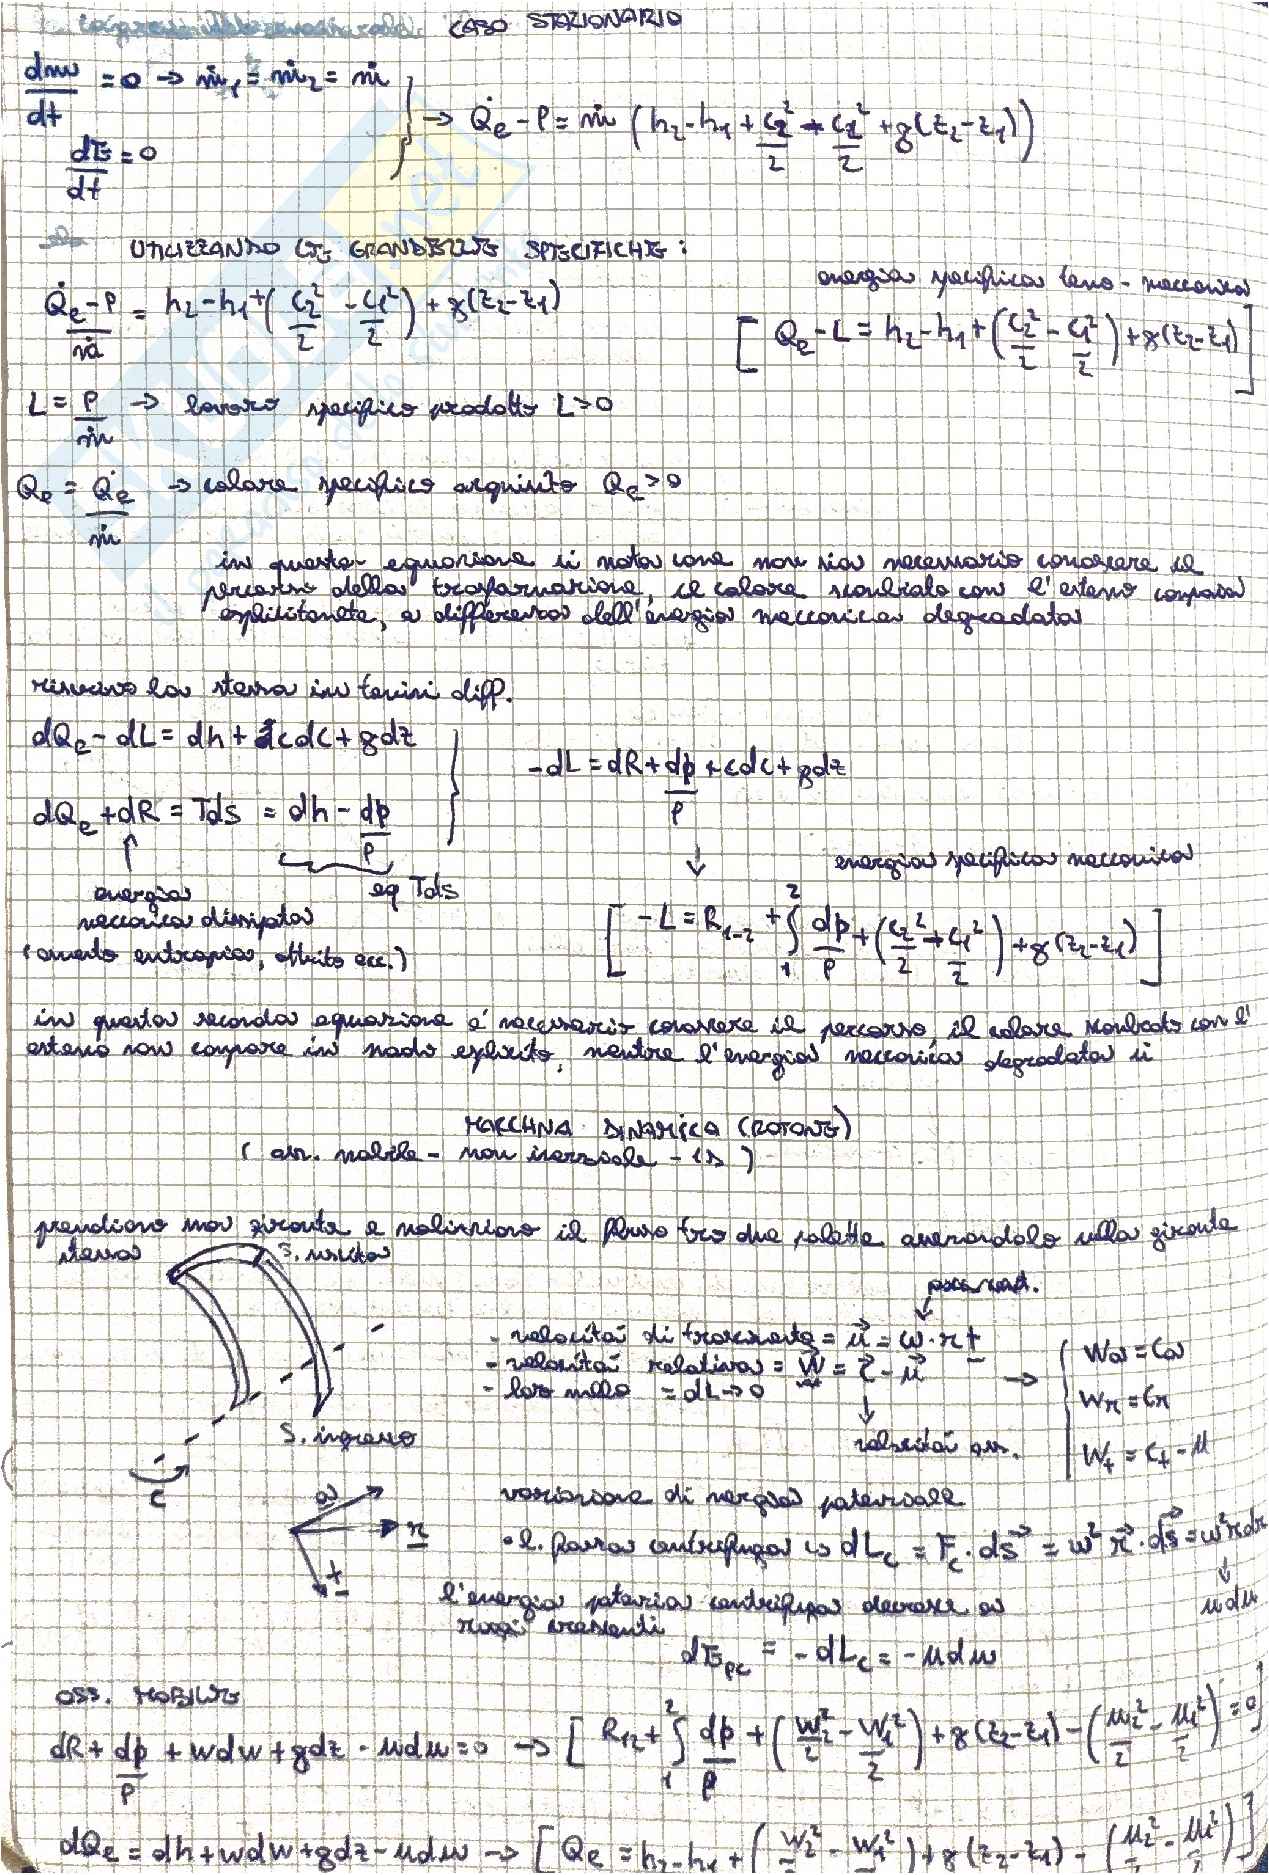 CASO STAZIONARIO
dm/dt = 0 → ṁ₁ = ṁ₂ = ṁ
dE/dt = 0
→ Q̇e - P = ṁ (h₂ - h₁ + c₂²/2 - c₁²/2 + g(z₂ - z₁))
UTILIZZANDO LE GRANDEZZE SPECIFICHE:
energia specifica termo-meccanica
(Q̇e - P)/ṁ = h₂ - h₁ + (c₂²/2 - c₁²/2) + g(z₂ - z₁)
[Qe - L = h₂ - h₁ + (c₂²/2 - c₁²/2) + g(z₂ - z₁)]
L = P/ṁ → lavoro specifico prodotto L>0
Qe = Q̇e/ṁ → calore specifico acquisito Qe>0
in questa equazione si nota come non sia necessario conoscere il
percorso della trasformazione, il calore scambiato con l'esterno compare
esplicitamente, a differenza dell'energia meccanica degradata
riscrivo la stessa in termini diff.
dQe - dL = dh + cdc + gdz
dQe + dR = Tds = dh - dp/ρ
-dL = dR + dp/ρ + cdc + gdz
↑ ↓
energia specifica meccanica
eq Tds
energia
meccanica dissipata
(aumento entropia, attrito ecc.)
[-L = R₁₋₂ + ∫₁² dp/ρ + (c₂²/2 + c₁²/2) + g(z₂ - z₁)]
in questa seconda equazione è necessario conoscere il percorso, il calore scambiato con l'
esterno non compare in modo esplicito, mentre l'energia meccanica degradata si
MACCHINA DINAMICA (ROTANTE)
(oss. mobile - non inerziale - 1D)
prendiamo una girante e analizziamo il flusso tra due palette osservandolo sulla girante
stessa
S. uscita
- velocità di trascinamento = u⃗ = ω·r t
- velocità relativa = w⃗ = c⃗ - u⃗
- lavoro nullo = dL→0
→ { wa = ca
wr = cr
wt = ct - u
S. ingresso
velocità ass.
c
a
r
t
variazione di energia potenziale
• l. forza centrifuga ↪ dLc = Fc·ds⃗ = ω² r⃗·ds⃗ = ω²rdr
↓
udu
l'energia potenziale centrifuga decresce a
raggi crescenti
dEpc = -dLc = -udu
OSS. MOBILE
dR + dp/ρ + wdw + gdz - udu = 0 → [R₁₂ + ∫₁² dp/ρ + (w₂²/2 - w₁²/2) + g(z₂ - z₁) - (u₂²/2 - u₁²/2) = 0]
dQe = dh + wdw + gdz - udu → [Qe = h₂ - h₁ + (w₂²/2 - w₁²/2) + g(z₂ - z₁) - (u₂²/2 - u₁²/2)]